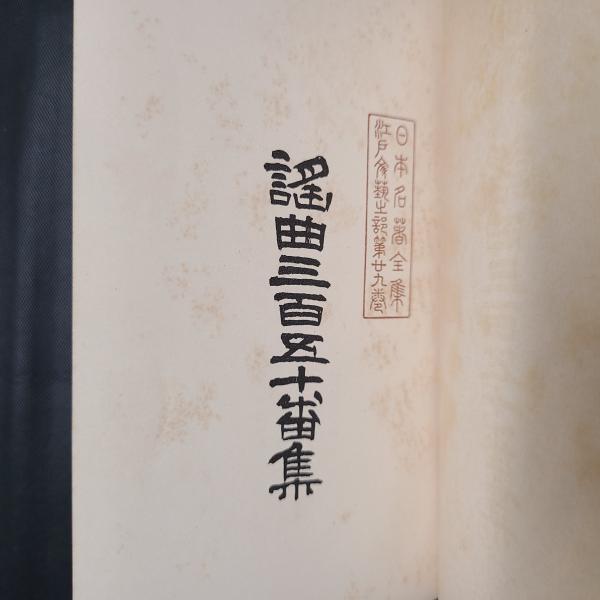 日本名著全集
江戶文藝之部第廿九卷
謠曲三百五十番集